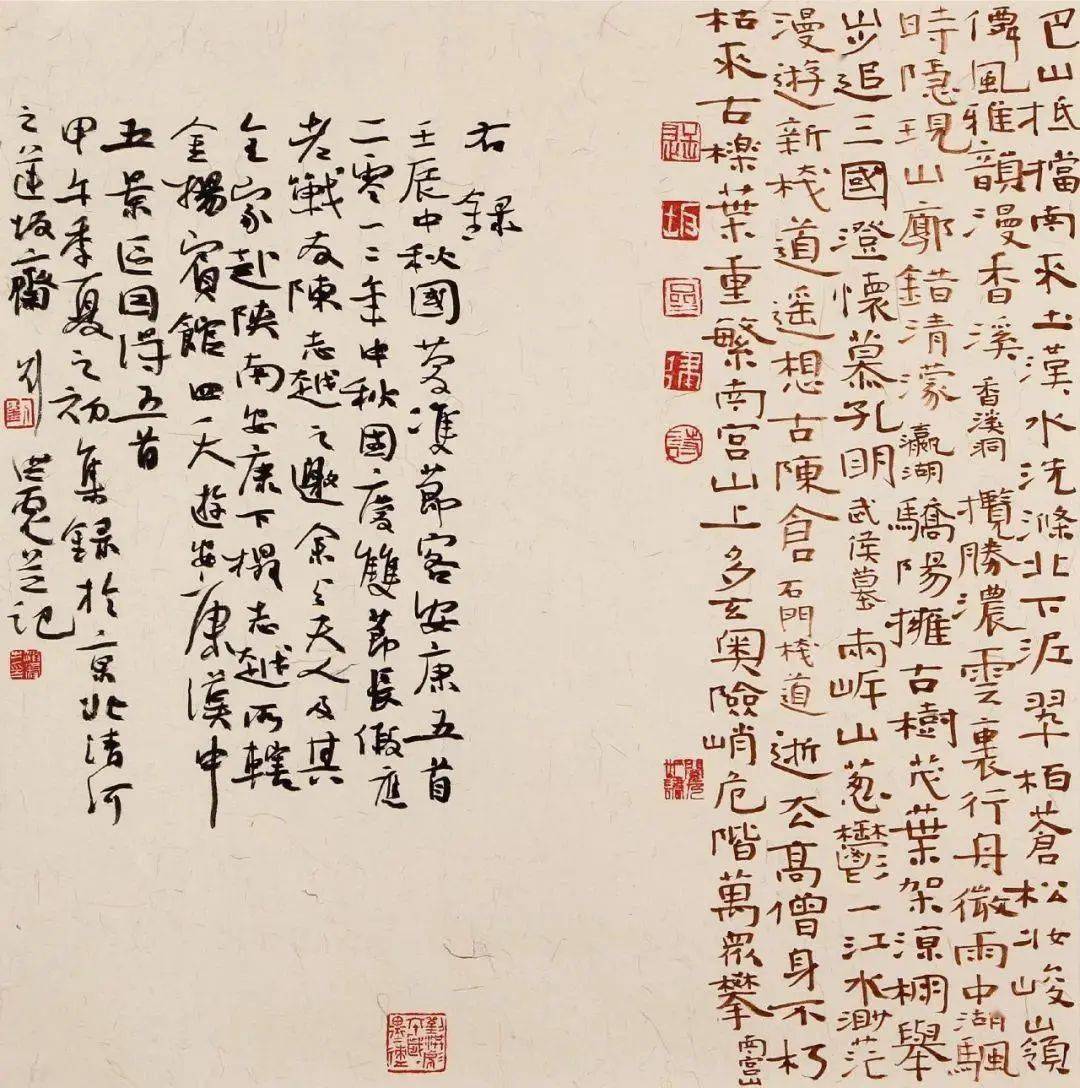 巴山抵擋南來土漢水洗滌北下泥翠柏蒼松妝峻嶺
僊風雅韻漫香溪 香溪洞 攬勝濃雲裏行舟微雨中湖颿
時隱現山廓錯清濛 瀛湖 驕陽擁古樹茂葉架涼棚舉
步追三國澄懷慕孔明 武侯墓 兩岸山蔥鬱一江水渺茫
漫遊新棧道遥想古陳倉 石門棧道 逝去高僧身不朽
枯來古櫟葉重繁南宫山上多玄奥險峭危階萬眾攀 南宫山
右錄
壬辰中秋國慶雙節客安康五首
二零一二年中秋國慶雙節長假應
老戰友陳志越之邀余与夫人及其
全家赴陝南安康下榻志越所轄
金揚賓館四天遊安康漢中
五景區因得五首
甲午季夏之初集錄於京北清河
之蓮坂齋 劉洪彪并記